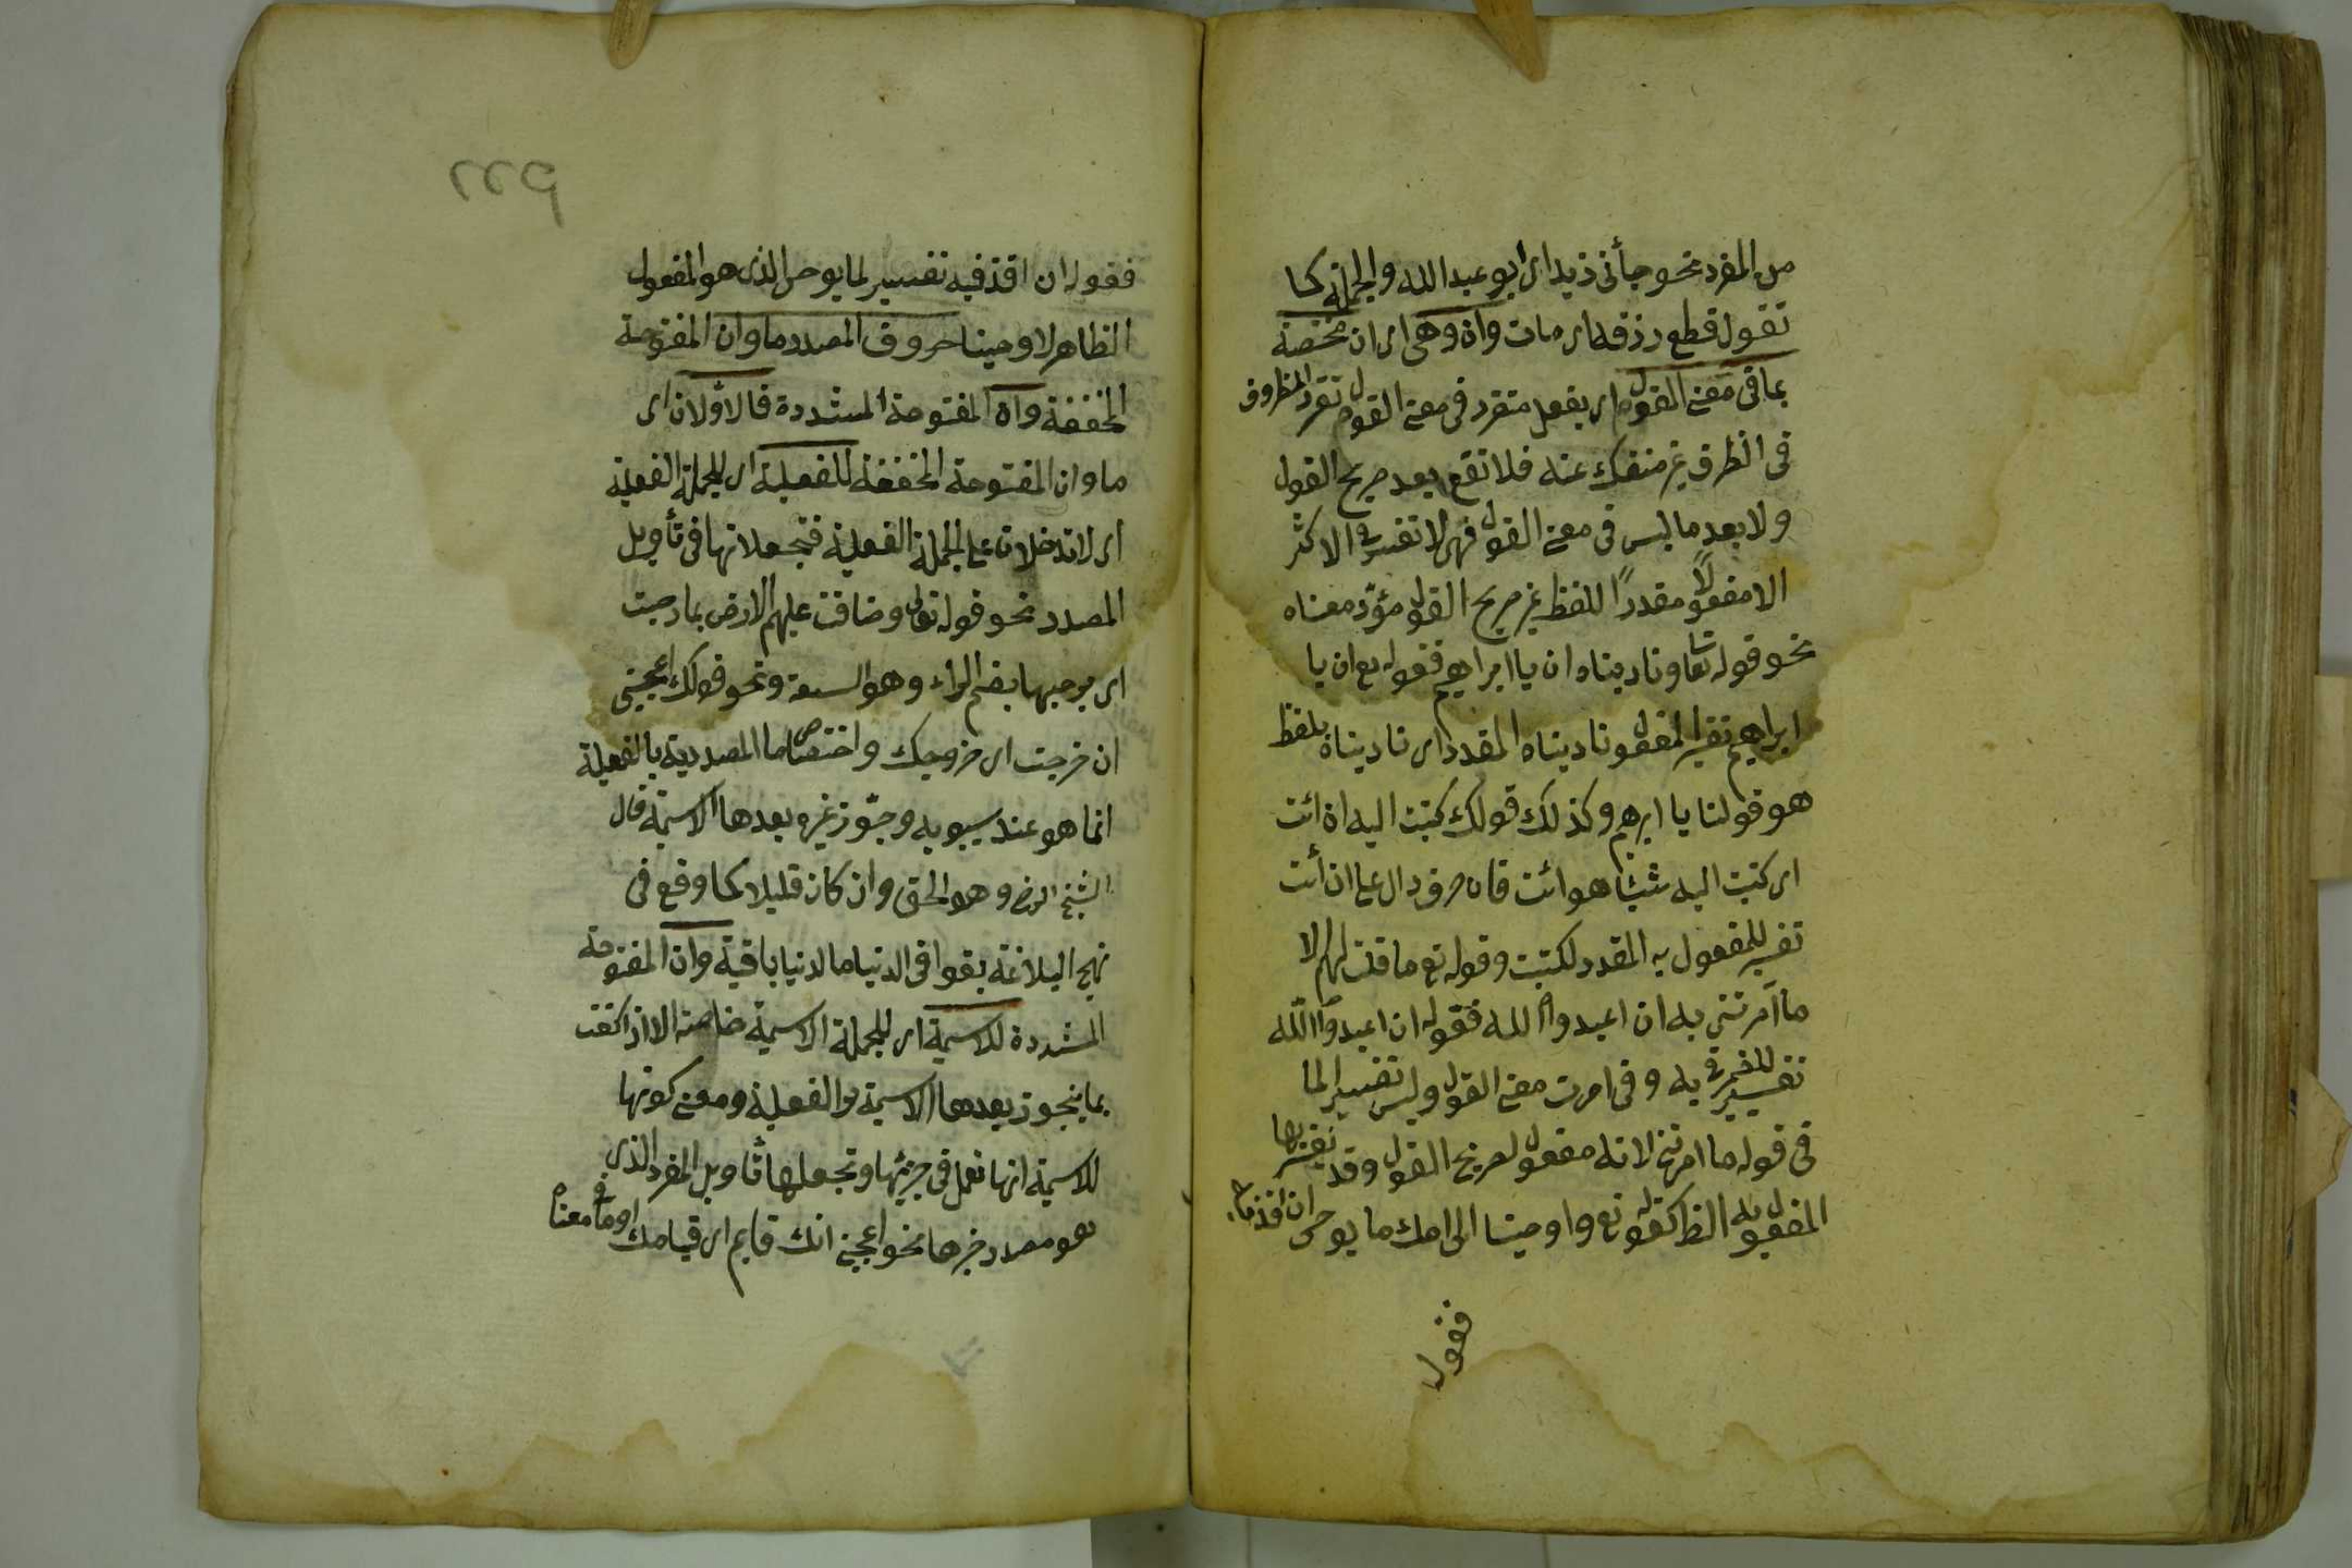 من المفرد نحو جأنى زيد اى ابو عبد الله والجملة كما
تقول قطع رزقه اى مات وان وهى اى ان مختصة
بما فى معنى القول اى بفعل متقرر فى معنى القول تقرر المظروف
فى الظرف غير منفك عنه فلا تقع بعد صريح القول
ولا بعد ما ليس فى معنى القول فهى لا تفسر فى الاكثر
الا مفعولاً مقدراً للفظ غير صريح القول مؤدّ معناه
نحو قوله تعا وناديناه ان يا ابراهيم فقوله تع ان يا
ابراهيم تفسير لمفعول ناديناه المقدر اى ناديناه بلفظ
هو قولنا يا ابرهيم وكذلك قولك كتبت اليه ان ائت
اى كتبت اليه شيئا هو ائت فان حرف دال على ان أئت
تفسير للمفعول به المقدر لكتبت وقوله تع ما قلت لهم الا
ما آمرتنى به ان اعبدوا الله فقوله ان اعبدوا الله
تفسير للضمير فى به وفى امرت معنى القول وليس تفسيرا لما
فى قوله ما امرتنى لانه مفعول لصريح القول وقد يفسر بها
المفعول به الظ كقوله تع واوحينا الى امك ما يوحى ان اقذفيه
فقول
٢٢٩
فقوله ان اقذفيه تفسير لما يوحى الذى هو المفعول
الظاهر لاوحينا حروف المصدر ما وان المفتوحة
المخففة وان المفتوحة المشددة فالاولان اى
ما وان المفتوحة المخففة للفعلية اى للجملة الفعلية
اى لا تدخلان على الجملة الفعلية فتجعلانها فى تأويل
المصدر نحو قوله تعالى وضاقت عليهم الارض بما رحبت
اى برحبها بضم الراء وهو السعة ونحو قولك اعجبنى
ان خرجت اى خروجك واختصاص ما المصدرية بالفعلية
انما هو عند سيبويه وجوّز غيره بعدها الاسمية قال
الشيخ الرضى وهو الحق وان كان قليلا كما وقع فى
نهج البلاغة بقوا فى الدنيا ما الدنيا باقية وان المفتوحة
المشددة للاسمية اى للجملة الاسمية خاصة الا اذا كفت
بما فيجوز بعدها الاسمية والفعلية ومعنى كونها
للاسمية انها تعمل فى جزئيها وتجعلها تاويل المفرد الذى
هو مصدر خبرها نحو اعجبنى انك قايم اى قيامك او ما فى معناه